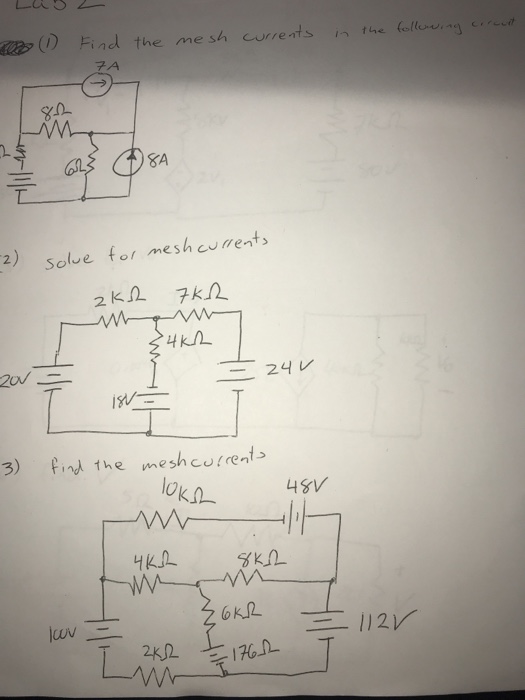 (1) Find the mesh currents in the following
7A
8Ω
6Ω
8A
2) solve for mesh currents
2kΩ 7kΩ
4kΩ
20V
24V
18V
3) find the mesh currents
10kΩ
48V
4kΩ
8kΩ
6kΩ
112V
2kΩ
176Ω